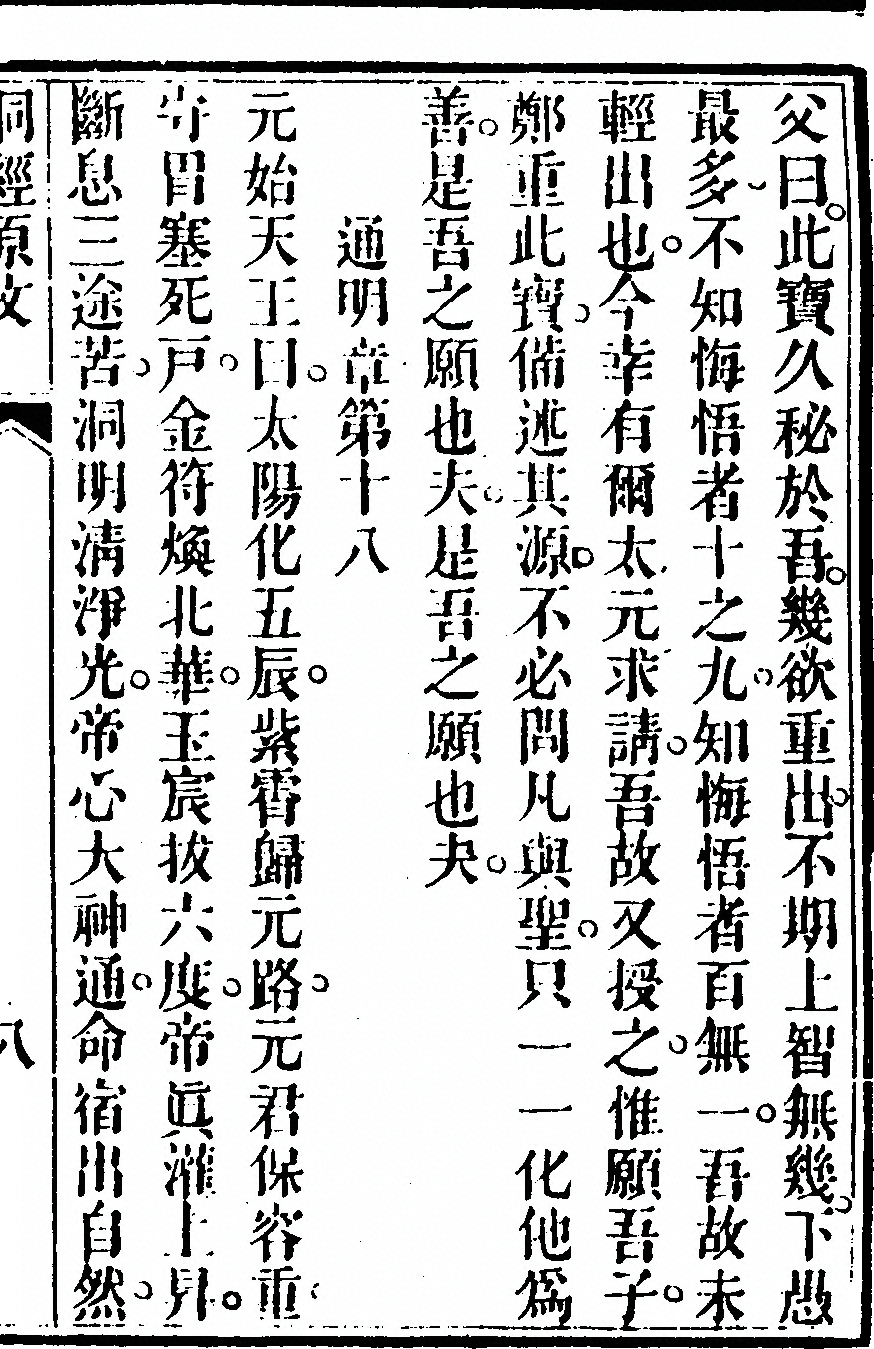 父曰。此寶久秘於吾。幾欲重出。不期上智無幾。下愚
最多。不知悔悟者十之九。知悔悟者百無一。吾故未
輕出也。今幸有爾太元求請。吾故又授之。惟願吾子。
鄭重此寶。偹述其源。不必問凡與聖。只一一化他爲
善。是吾之願也夫。是吾之願也夫。
通明章第十八
元始天王曰。太陽化五辰。紫霄歸元路。元君保容重。
寄胃塞死戸。金符煥北華。玉宸拔六度。帝眞灌上昇。
斷息三途苦。洞明淸淨光。帝心大神通。命宿出自然。
洞經原文 八